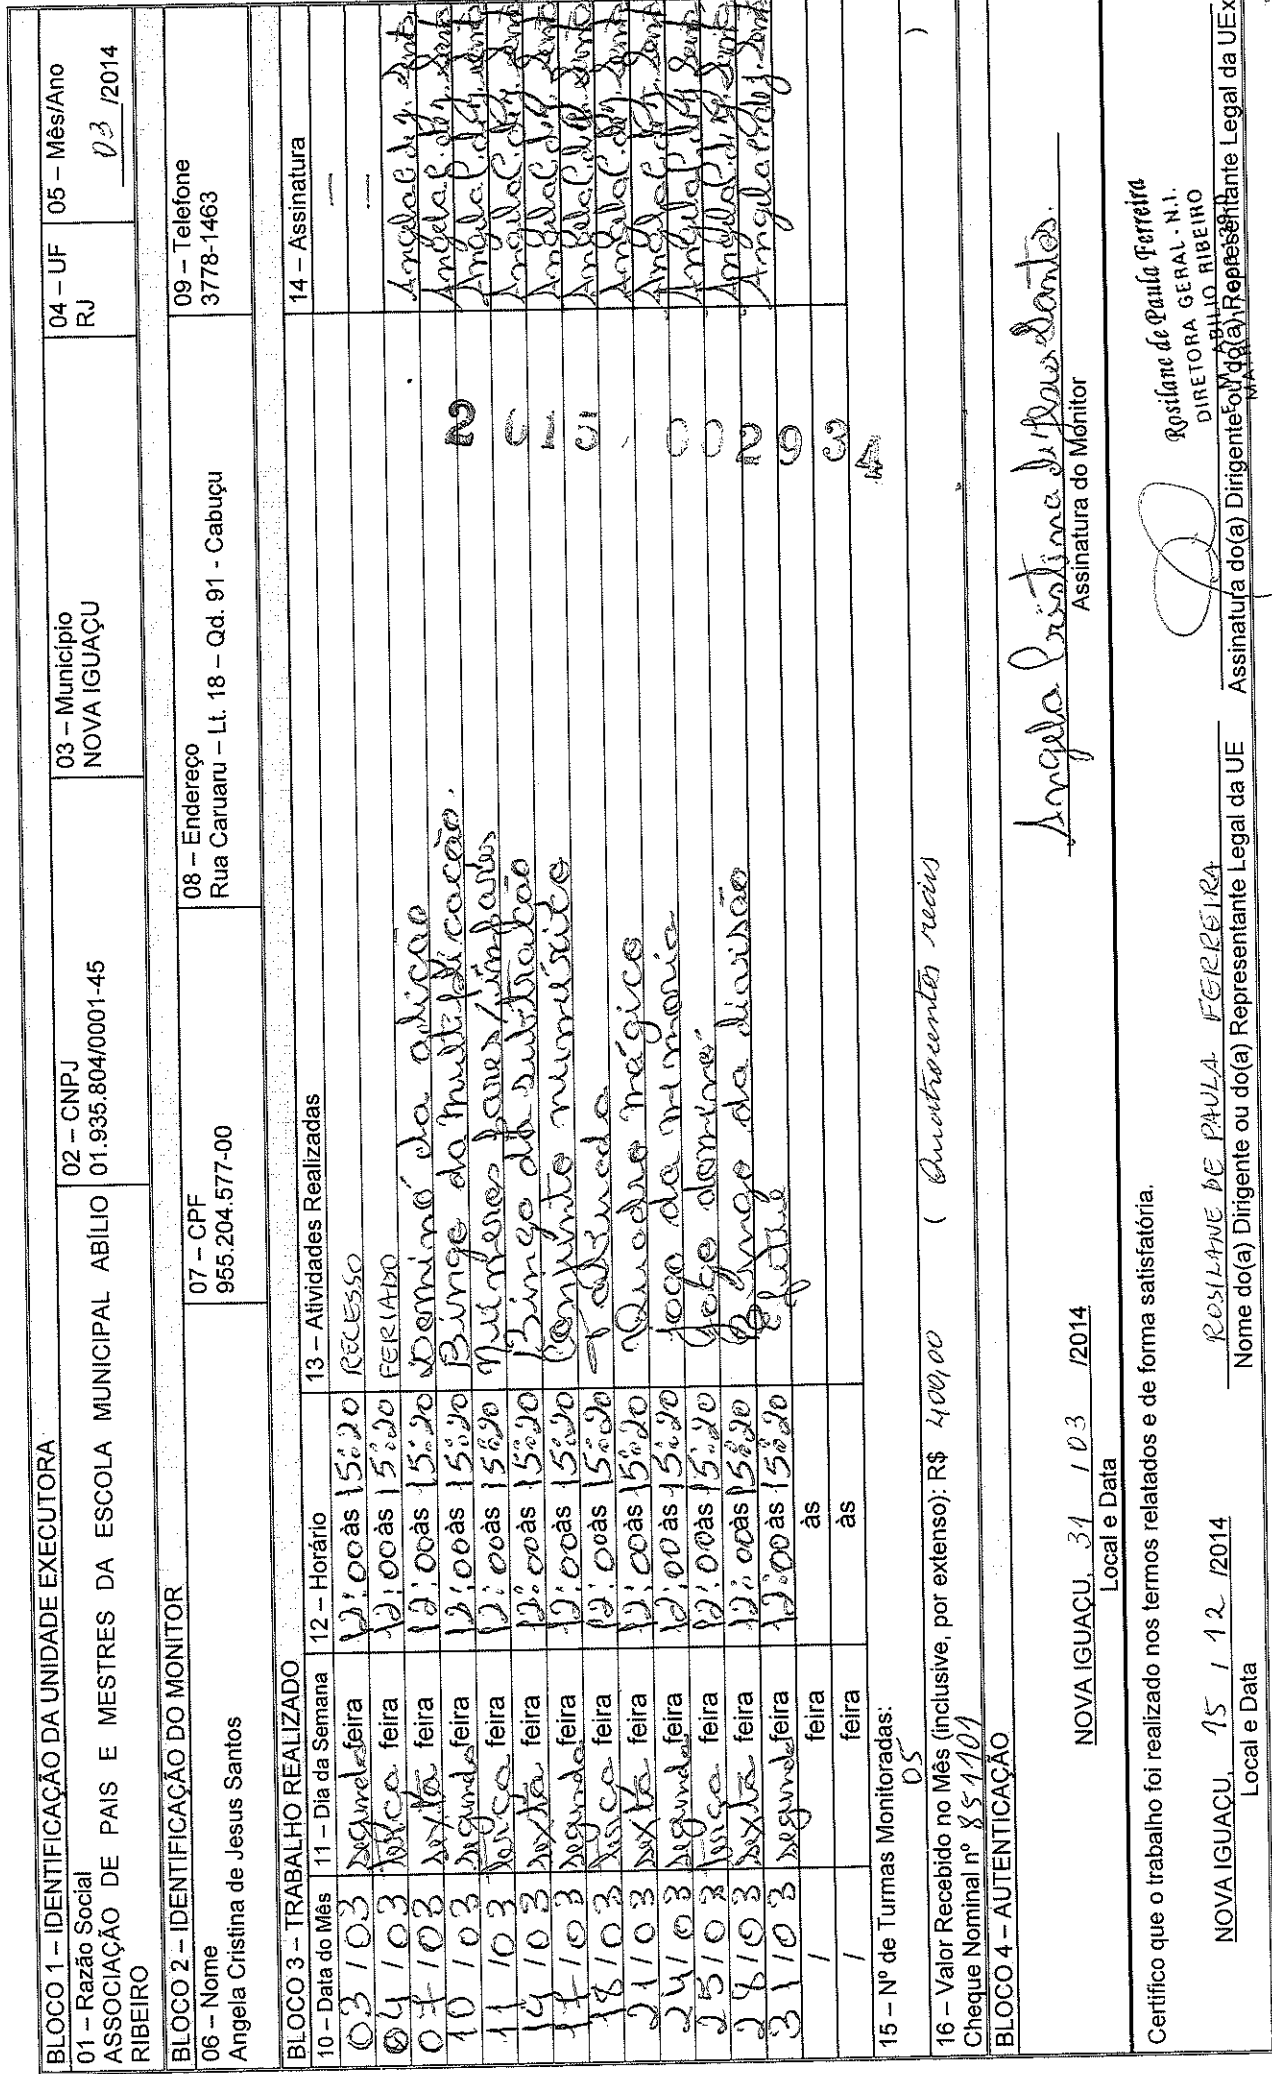 BLOCO 1 – IDENTIFICAÇÃO DA UNIDADE EXECUTORA
01 – Razão Social
ASSOCIAÇÃO DE PAIS E MESTRES DA ESCOLA MUNICIPAL ABÍLIO RIBEIRO
02 – CNPJ
01.935.804/0001-45
03 – Município
NOVA IGUAÇU
04 – UF
RJ
05 – Mês/Ano
03 /2014
BLOCO 2 – IDENTIFICAÇÃO DO MONITOR
06 – Nome
Angela Cristina de Jesus Santos
07 – CPF
955.204.577-00
08 – Endereço
Rua Caruaru – Lt. 18 – Qd. 91 - Cabuçu
09 – Telefone
3778-1463
BLOCO 3 – TRABALHO REALIZADO
10 – Data do Mês 11 – Dia da Semana 12 – Horário 13 – Atividades Realizadas 14 – Assinatura
03 / 03 segunda feira 12:00 às 15:20 RECESSO —
04 / 03 terça feira 12:00 às 15:20 FERIADO —
07 / 03 sexta feira 12:00 às 15:20 Dominó da adição Angela C. de J. Santos
10 / 03 segunda feira 12:00 às 15:20 Bingo da multiplicação. Angela C. de J. Santos
11 / 03 terça feira 12:00 às 15:20 Números pares/ímpares Angela C. de J. Santos
14 / 03 sexta feira 12:00 às 15:20 Bingo da subtração Angela C. de J. Santos
17 / 03 segunda feira 12:00 às 15:20 Conjunto numérico Angela C. de J. Santos
18 / 03 terça feira 12:00 às 15:20 Tabuada Angela C. de J. Santos
21 / 03 sexta feira 12:00 às 15:20 Quadro mágico Angela C. de J. Santos
24 / 03 segunda feira 12:00 às 15:20 Jogo da memoria Angela C. de J. Santos
25 / 03 terça feira 12:00 às 15:20 Jogo dominó Angela C. de J. Santos
28 / 03 sexta feira 12:00 às 15:20 Bingo da divisão Angela C. de J. Santos
31 / 03 segunda feira 12:00 às 15:20 Angela C. de J. Santos
/ feira às
/ feira às
15 – Nº de Turmas Monitoradas:
05
16 – Valor Recebido no Mês (inclusive, por extenso): R$ 400,00 ( Quatrocentos reais )
Cheque Nominal nº 851101
BLOCO 4 – AUTENTICAÇÃO
NOVA IGUAÇU, 31 / 03 /2014
Local e Data
Angela Cristina de Jesus Santos.
Assinatura do Monitor
Certifico que o trabalho foi realizado nos termos relatados e de forma satisfatória.
NOVA IGUAÇU, 15 / 12 /2014
Local e Data
ROSILANE DE PAULA FERREIRA
Nome do(a) Dirigente ou do(a) Representante Legal da UE
Rosilane de Paula Ferreira
DIRETORA GERAL - N.I.
ABILIO RIBEIRO
Assinatura do(a) Dirigente ou do(a) Representante Legal da UEx